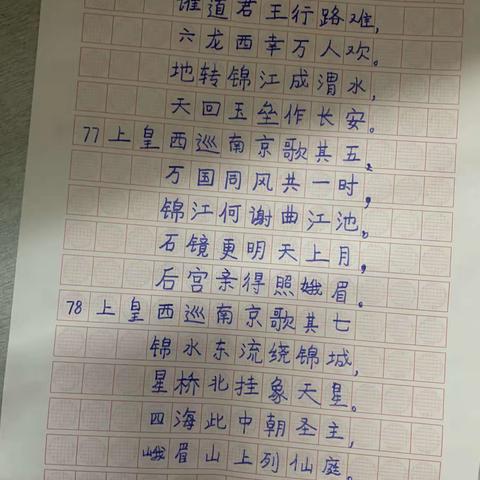 谁道君王行路难,
六龙西幸万人欢。
地转锦江成渭水,
天回玉垒作长安。
77 上皇西巡南京歌其五
万国同风共一时,
锦江何谢曲江池。
石镜更明天上月,
后宫亲得照娥眉。
78 上皇西巡南京歌其七
锦水东流绕锦城,
星桥北挂象天星。
四海此中朝圣主,
峨眉山上列仙庭。